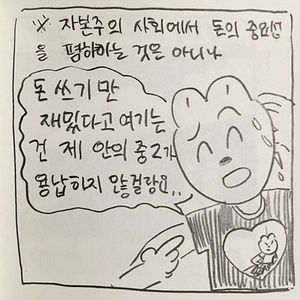 ※ 자본주의 사회에서 돈의 중요성
을 폄하하는 것은 아니나
돈 쓰기만
재밌다고 여기는
건 제 안의 중2가
용납하지 않을걸랑요..